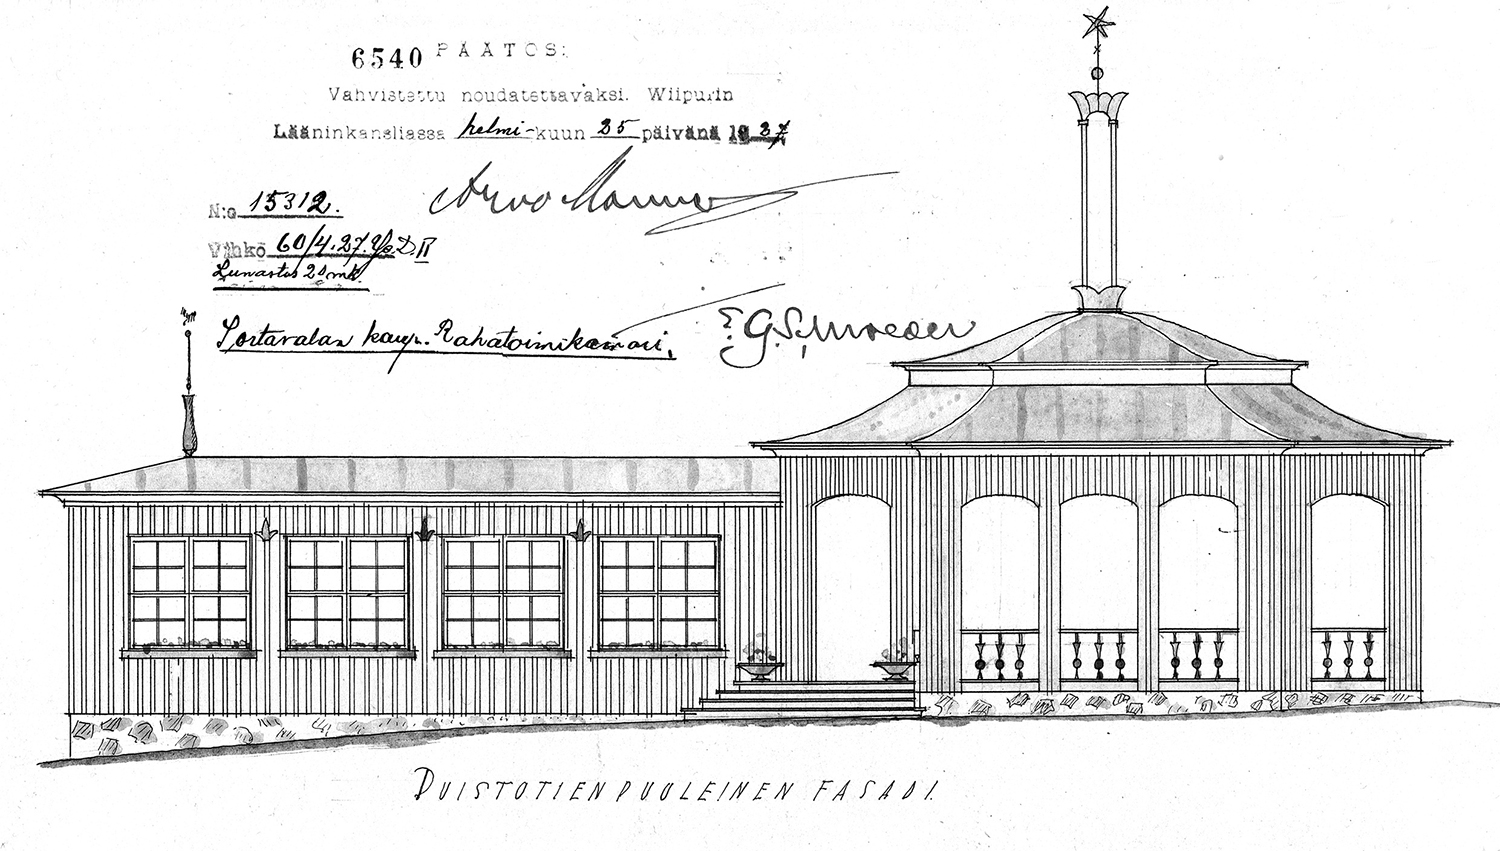 6540 PÄÄTOS:
Vahvistettu noudatettavaksi. Wiipurin
Lääninkansliassa helmi-kuun 25 päivänä 1927
N:o 15312.
Vihkö 60/4.27. D. II
Lunastus 20 mk.
Sortavalan kaup. Rahatoimikamari.
PUISTOTIENPUOLEINEN FASADI.